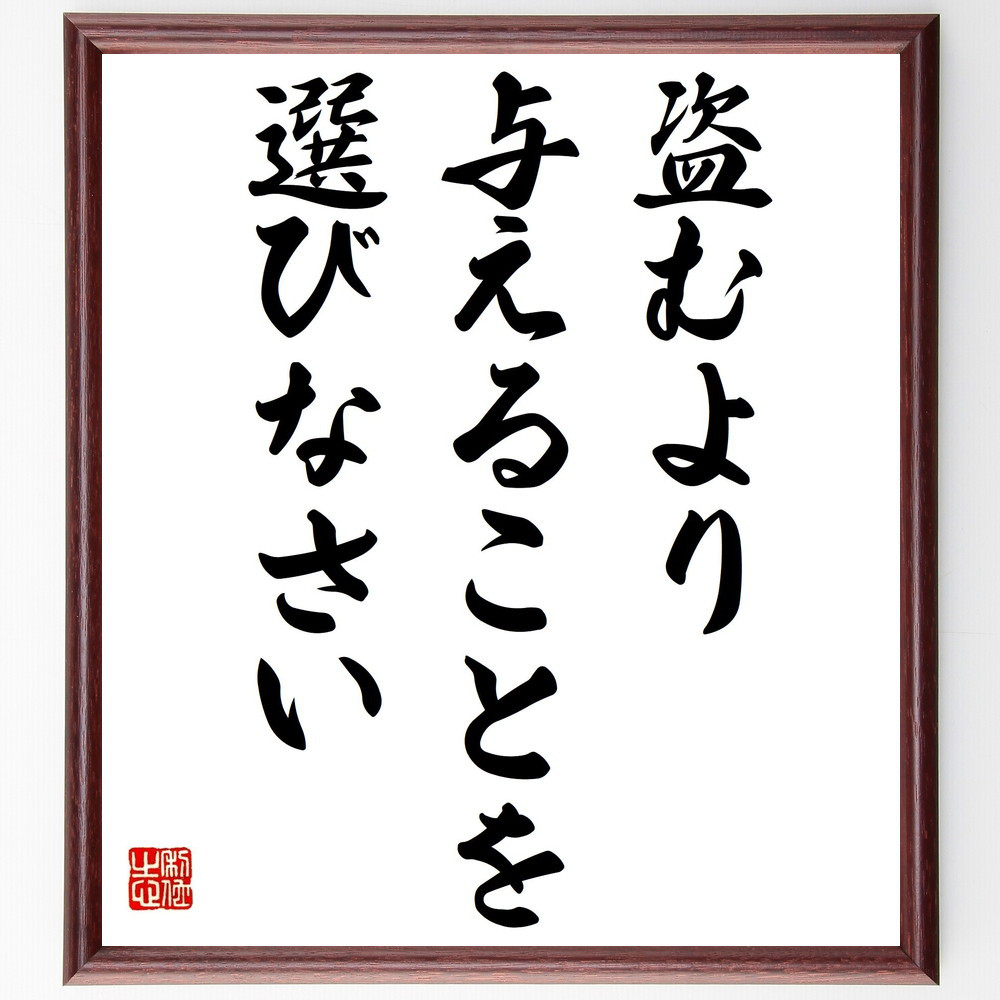 盗むより
与えることを
選びなさい